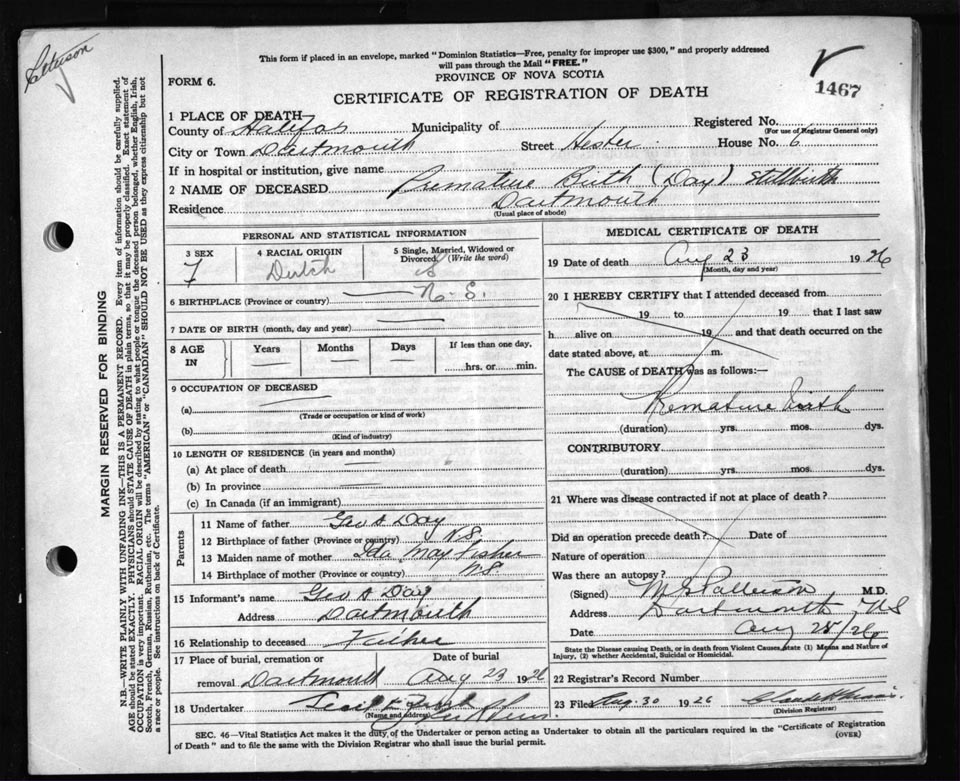 Patterson
This form if placed in an envelope, marked "Dominion Statistics—Free, penalty for improper use $300," and properly addressed
will pass through the Mail "FREE."
FORM 6.
PROVINCE OF NOVA SCOTIA
1467
CERTIFICATE OF REGISTRATION OF DEATH
1 PLACE OF DEATH
County of Halifax Municipality of Registered No.
(For use of Registrar General only)
City or Town Dartmouth Street Hester House No. 6
If in hospital or institution, give name
2 NAME OF DECEASED Premature Birth (Day) Stillbirth
Residence Dartmouth
(Usual place of abode)
PERSONAL AND STATISTICAL INFORMATION
3 SEX 4 RACIAL ORIGIN 5 Single, Married, Widowed or
Divorced. (Write the word)
F Dutch S
6 BIRTHPLACE (Province or country) N.S.
7 DATE OF BIRTH (month, day and year)
8 AGE IN Years Months Days If less than one day,
hrs. or min.
9 OCCUPATION OF DECEASED
(a)
(Trade or occupation or kind of work)
(b)
(Kind of industry)
10 LENGTH OF RESIDENCE (in years and months)
(a) At place of death
(b) In province
(c) In Canada (if an immigrant)
Parents
11 Name of father Geo A Day
12 Birthplace of father (Province or country) N.S.
13 Maiden name of mother Ida May Fisher
14 Birthplace of mother (Province or country) N.S.
15 Informant's name Geo A Day
Address Dartmouth
16 Relationship to deceased Father
17 Place of burial, cremation or Date of burial
removal Dartmouth Aug 23 1926
18 Undertaker
(Name and address)
MEDICAL CERTIFICATE OF DEATH
19 Date of death Aug 23 1926
(Month, day and year)
20 I HEREBY CERTIFY that I attended deceased from
19 to 19 that I last saw
h alive on 19 and that death occurred on the
date stated above, at m.
The CAUSE of DEATH was as follows:—
Premature birth
(duration) yrs. mos. dys.
CONTRIBUTORY
(duration) yrs. mos. dys.
21 Where was disease contracted if not at place of death?
Did an operation precede death? Date of
Nature of operation
Was there an autopsy?
(Signed) M S Patterson M.D.
Address Dartmouth NS
Date Aug 25/26
State the Disease causing Death, or in death from Violent Causes, state (1) Means and Nature of
Injury, (2) whether Accidental, Suicidal or Homicidal.
22 Registrar's Record Number
23 Filed Aug. 30 1926
(Division Registrar)
SEC. 46—Vital Statistics Act makes it the duty of the Undertaker or person acting as Undertaker to obtain all the particulars required in the "Certificate of Registration
of Death" and to file the same with the Division Registrar who shall issue the burial permit.
(OVER)
MARGIN RESERVED FOR BINDING
N.B.—WRITE PLAINLY WITH UNFADING INK—THIS IS A PERMANENT RECORD. Every item of information should be carefully supplied.
AGE should be stated EXACTLY. PHYSICIANS should STATE CAUSE OF DEATH in plain terms, so that it may be properly classified. Exact statement of
OCCUPATION is very important. RACIAL ORIGIN will be described by stating to what people or tongue the deceased person belonged, whether English, Irish,
Scotch, French, German, Russian, Ruthenian, etc. The terms "AMERICAN" or "CANADIAN" SHOULD NOT BE USED as they express citizenship but not
a race or people. See instructions on back of Certificate.